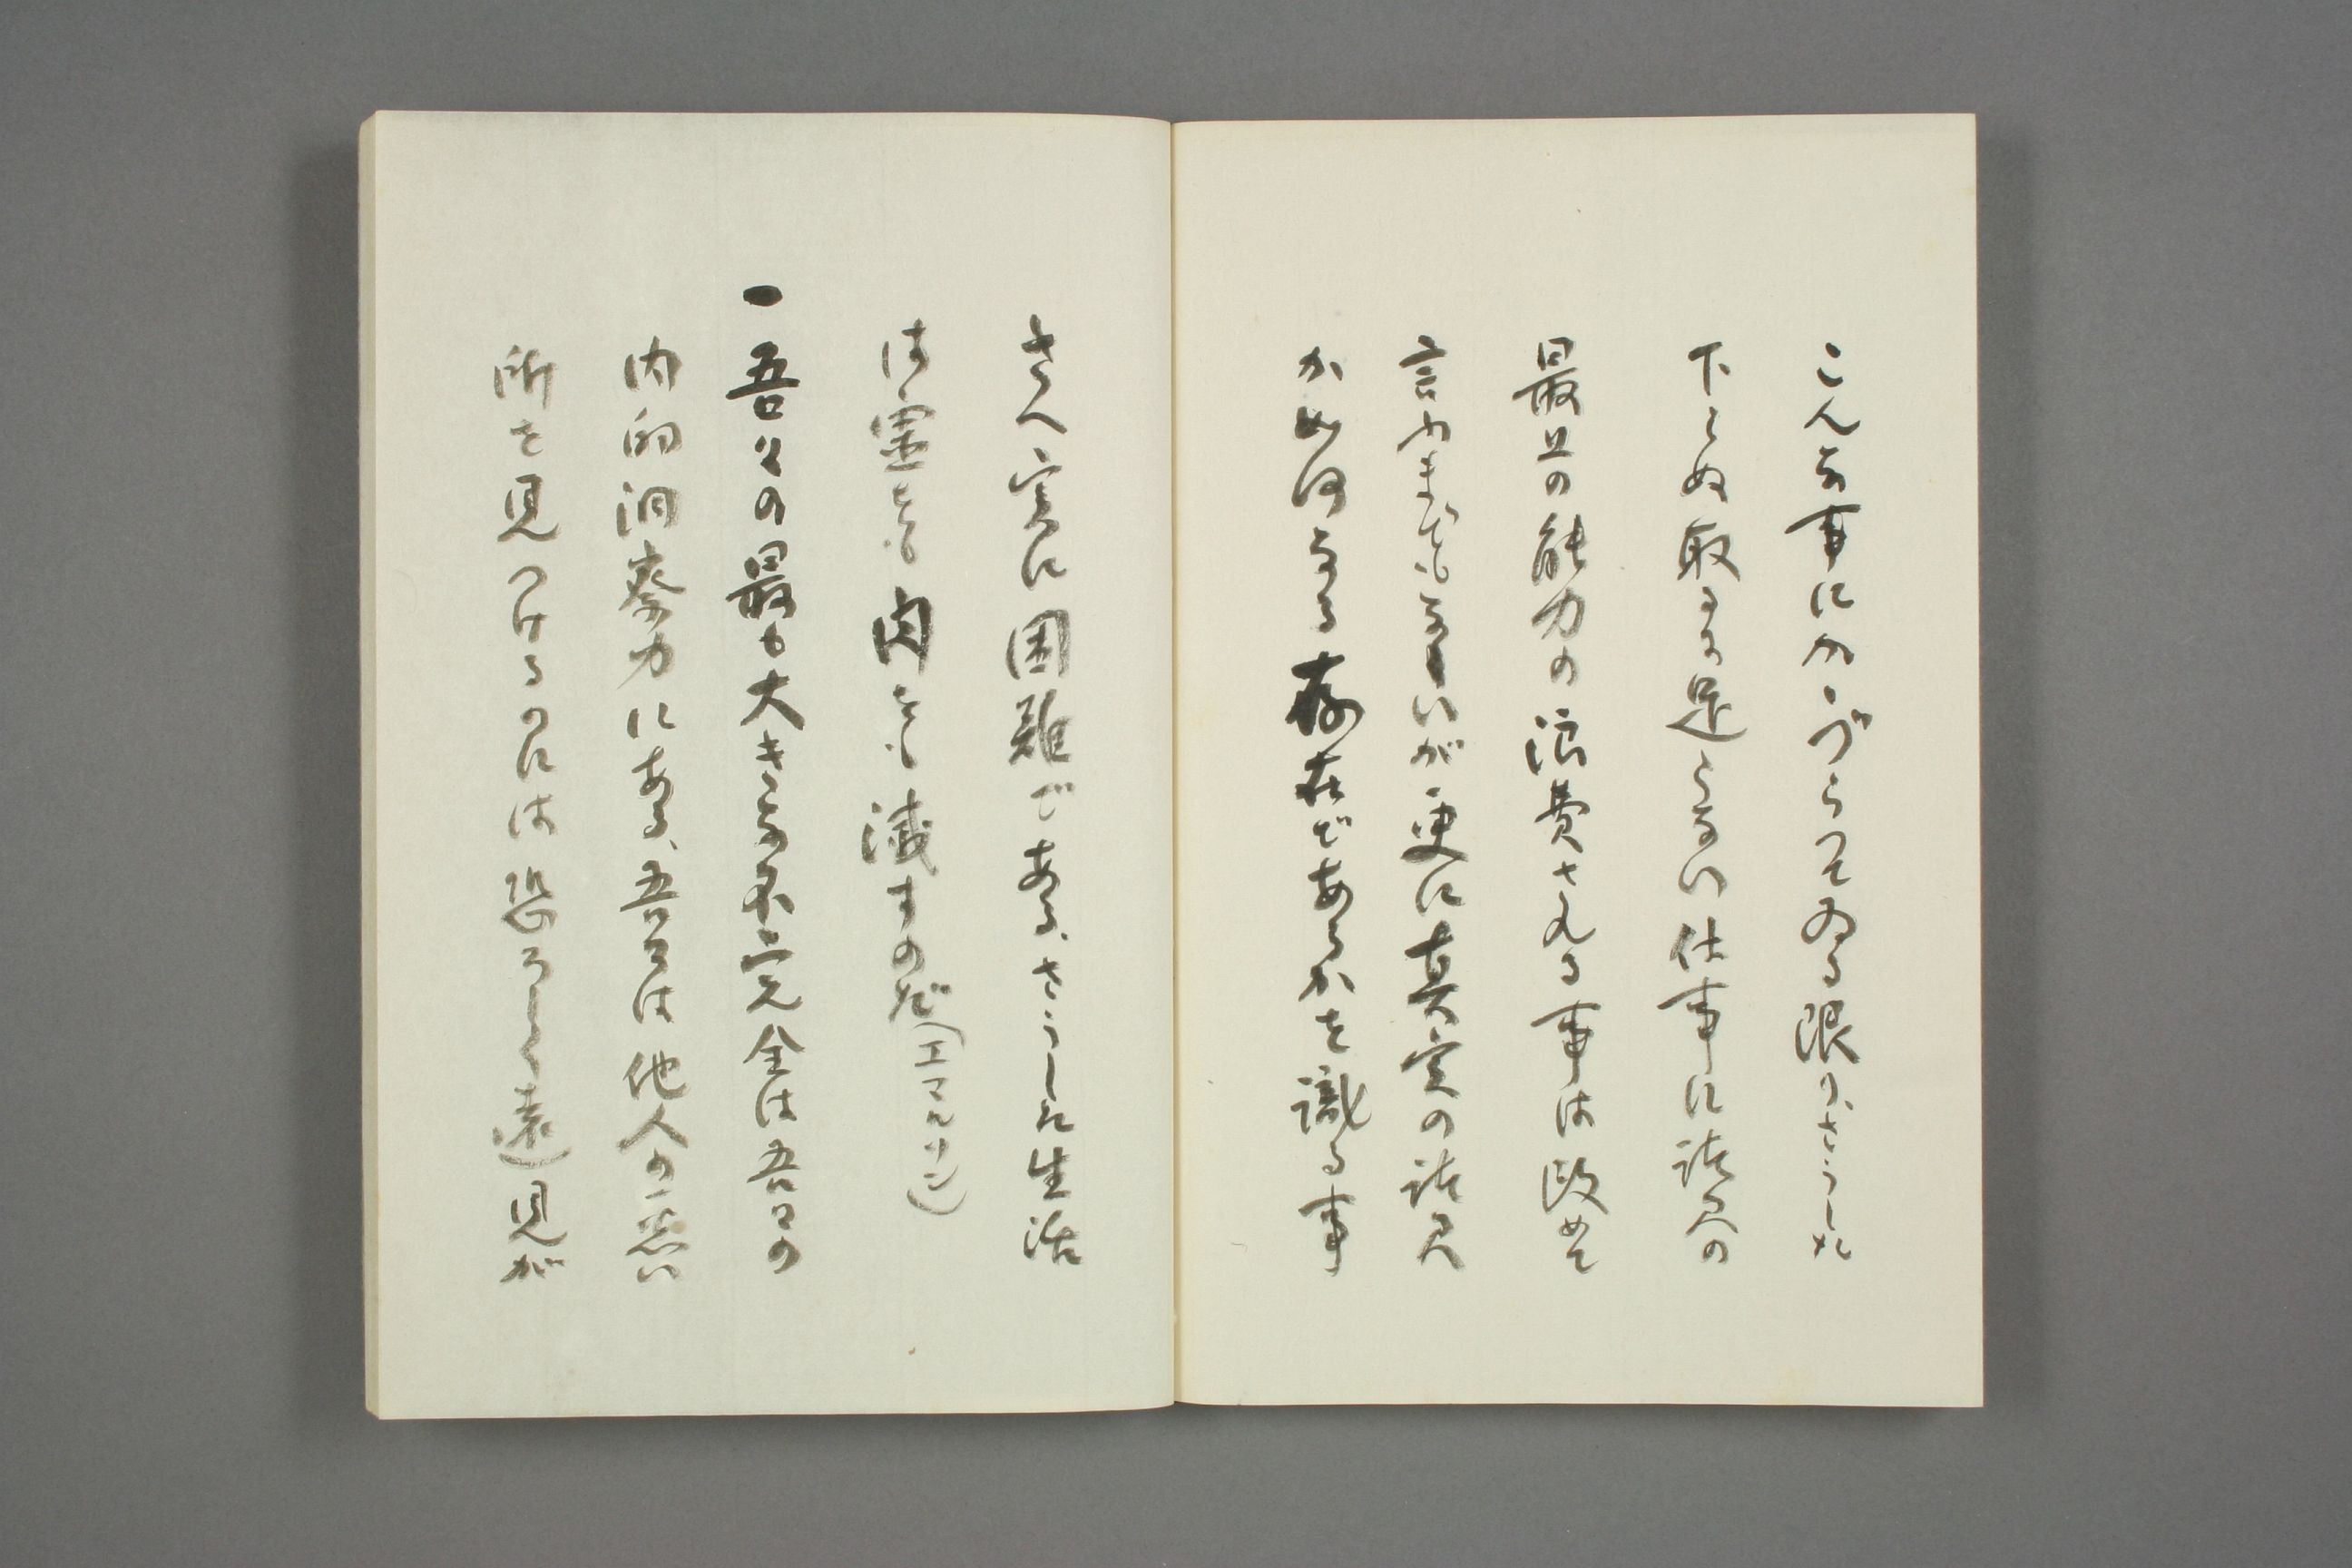 こんな事にかゝづらつてゐる限り、さうした
下らぬ取るに足らない仕事に諸君の
最上の能力の浪費される事は改めて
言ふまでもないが、更に真実の諸君
が如何なる存在であるかを識る事
さへ実に困難である、さうした生活
は霊をも肉をも滅すのだ（エマルソン）
一吾々の最も大きな不完全は吾々の
内的洞察力にある、吾々は他人の悪い
所を見つけるのには恐ろしく遠見が